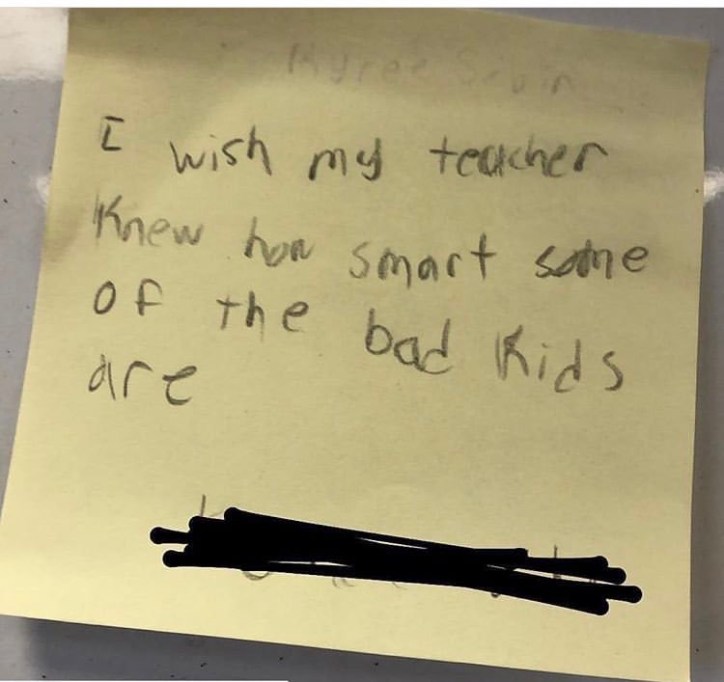 I wish my teacher
Knew how smart some
of the bad Kids
are